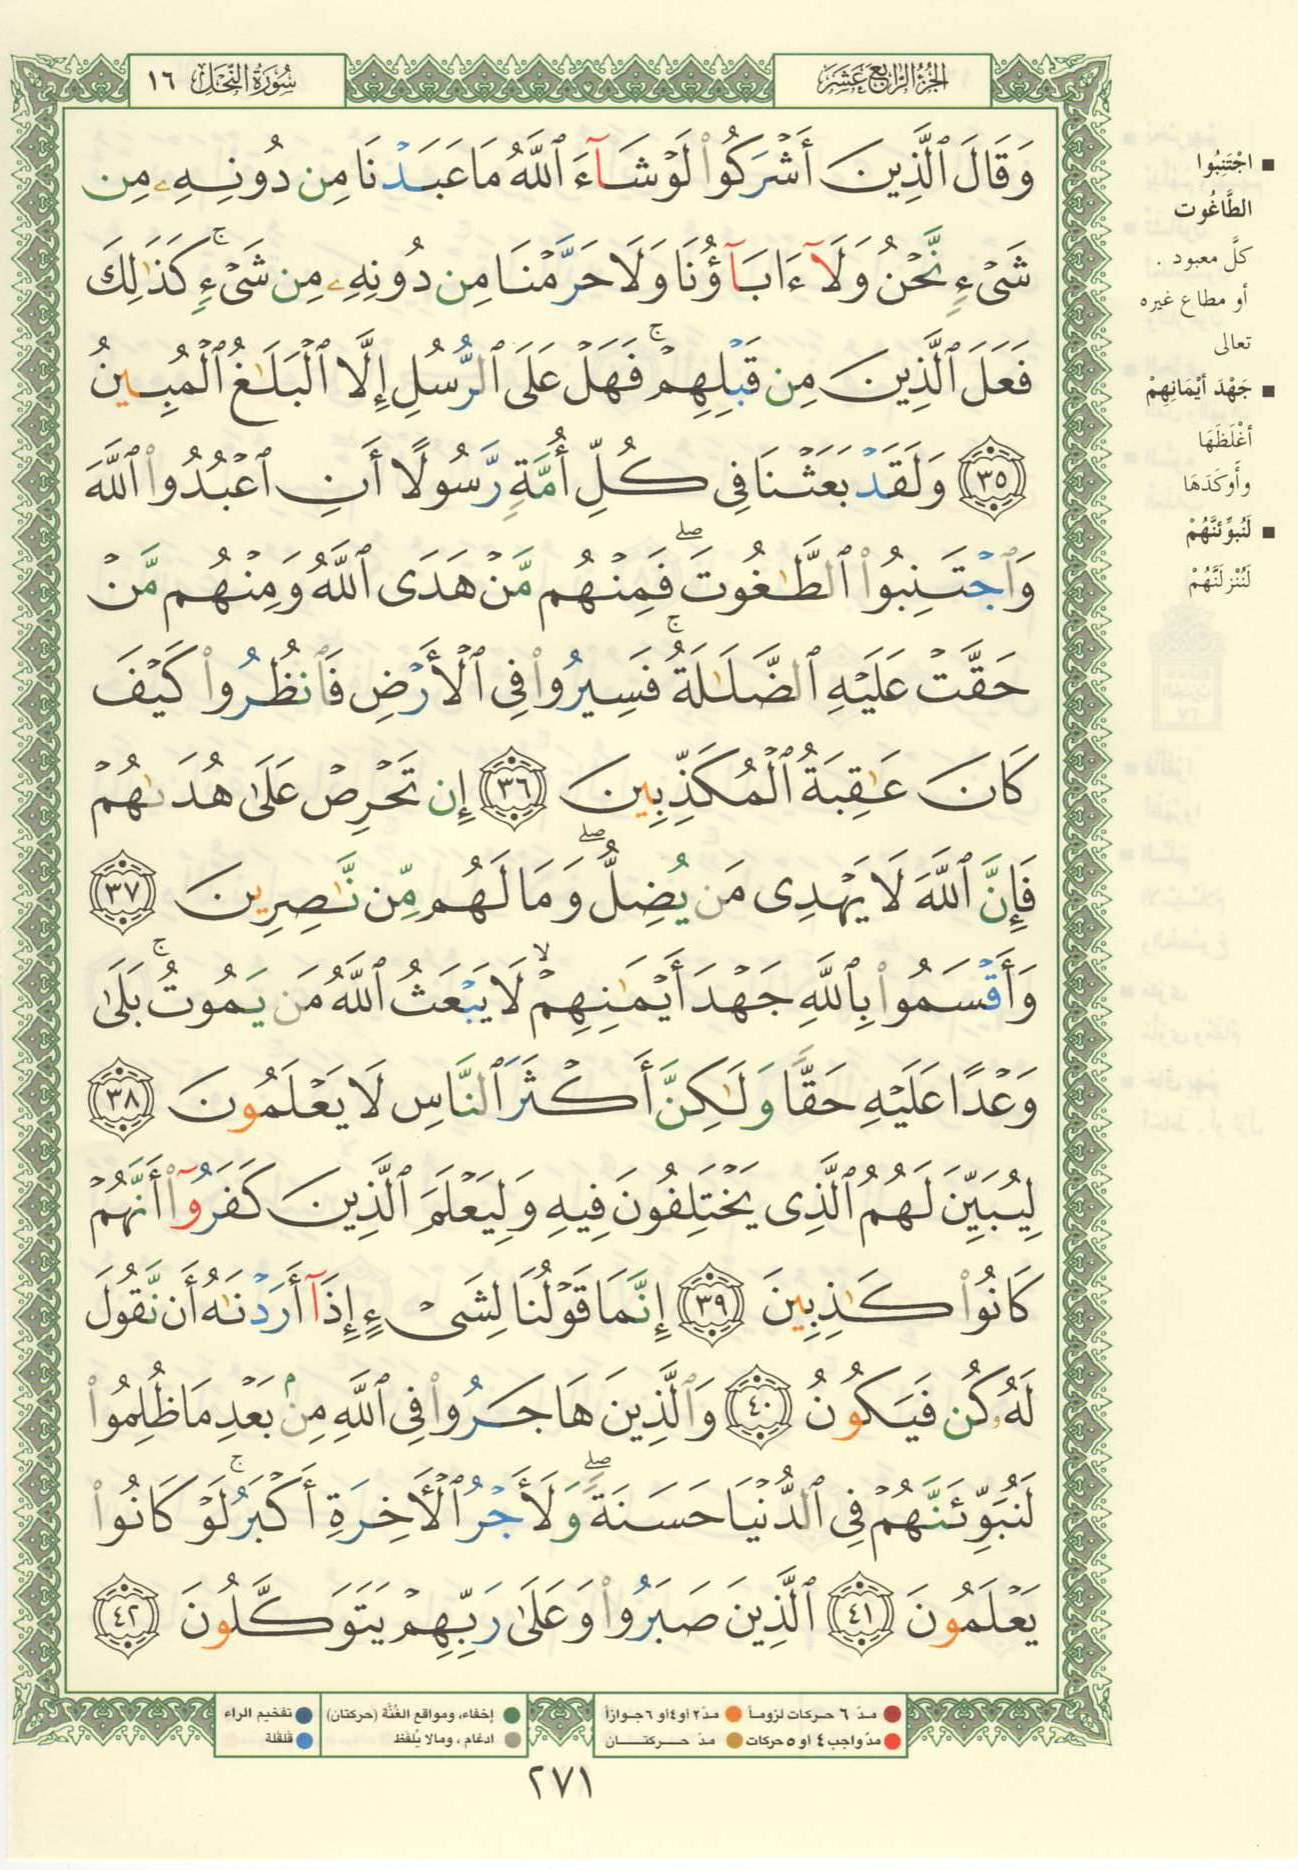 الجزء الرابع عشر
سورة النحل ١٦
وَقَالَ ٱلَّذِينَ أَشْرَكُوا۟ لَوْ شَآءَ ٱللَّهُ مَا عَبَدْنَا مِن دُونِهِۦ مِن
شَىْءٍ نَّحْنُ وَلَآ ءَابَآؤُنَا وَلَا حَرَّمْنَا مِن دُونِهِۦ مِن شَىْءٍ ۚ كَذَٰلِكَ
فَعَلَ ٱلَّذِينَ مِن قَبْلِهِمْ ۚ فَهَلْ عَلَى ٱلرُّسُلِ إِلَّا ٱلْبَلَـٰغُ ٱلْمُبِينُ
٣٥ وَلَقَدْ بَعَثْنَا فِى كُلِّ أُمَّةٍ رَّسُولًا أَنِ ٱعْبُدُوا۟ ٱللَّهَ
وَٱجْتَنِبُوا۟ ٱلطَّـٰغُوتَ ۖ فَمِنْهُم مَّنْ هَدَى ٱللَّهُ وَمِنْهُم مَّنْ
حَقَّتْ عَلَيْهِ ٱلضَّلَـٰلَةُ ۚ فَسِيرُوا۟ فِى ٱلْأَرْضِ فَٱنظُرُوا۟ كَيْفَ
كَانَ عَـٰقِبَةُ ٱلْمُكَذِّبِينَ ٣٦ إِن تَحْرِصْ عَلَىٰ هُدَىٰهُمْ
فَإِنَّ ٱللَّهَ لَا يَهْدِى مَن يُضِلُّ ۖ وَمَا لَهُم مِّن نَّـٰصِرِينَ ٣٧
وَأَقْسَمُوا۟ بِٱللَّهِ جَهْدَ أَيْمَـٰنِهِمْ ۙ لَا يَبْعَثُ ٱللَّهُ مَن يَمُوتُ ۚ بَلَىٰ
وَعْدًا عَلَيْهِ حَقًّا وَلَـٰكِنَّ أَكْثَرَ ٱلنَّاسِ لَا يَعْلَمُونَ ٣٨
لِيُبَيِّنَ لَهُمُ ٱلَّذِى يَخْتَلِفُونَ فِيهِ وَلِيَعْلَمَ ٱلَّذِينَ كَفَرُوٓا۟ أَنَّهُمْ
كَانُوا۟ كَـٰذِبِينَ ٣٩ إِنَّمَا قَوْلُنَا لِشَىْءٍ إِذَآ أَرَدْنَـٰهُ أَن نَّقُولَ
لَهُۥ كُن فَيَكُونُ ٤٠ وَٱلَّذِينَ هَاجَرُوا۟ فِى ٱللَّهِ مِنۢ بَعْدِ مَا ظُلِمُوا۟
لَنُبَوِّئَنَّهُمْ فِى ٱلدُّنْيَا حَسَنَةً ۖ وَلَأَجْرُ ٱلْـَٔاخِرَةِ أَكْبَرُ ۚ لَوْ كَانُوا۟
يَعْلَمُونَ ٤١ ٱلَّذِينَ صَبَرُوا۟ وَعَلَىٰ رَبِّهِمْ يَتَوَكَّلُونَ ٤٢
■ اجْتَنِبُوا
الطَّاغُوت
كلَّ معبود .
أو مطاع غيره
تعالى
■ جَهْدَ أيْمَانِهِمْ
أغْلَظَهَا
وأوكَدَهَا
■ لَنُبوِّئنَّهُمْ
لَنُنْزِلَنَّهُمْ
مدّ ٦ حركات لزوماً مدّ ٢ أو ٤ أو ٦ جوازاً إخفاء، ومواقع الغُنَّة (حركتان) تفخيم الراء
مدّ واجب ٤ أو ٥ حركات مدّ حركتان ادغام ، ومالا يُلفَظ قلقلة
٢٧١